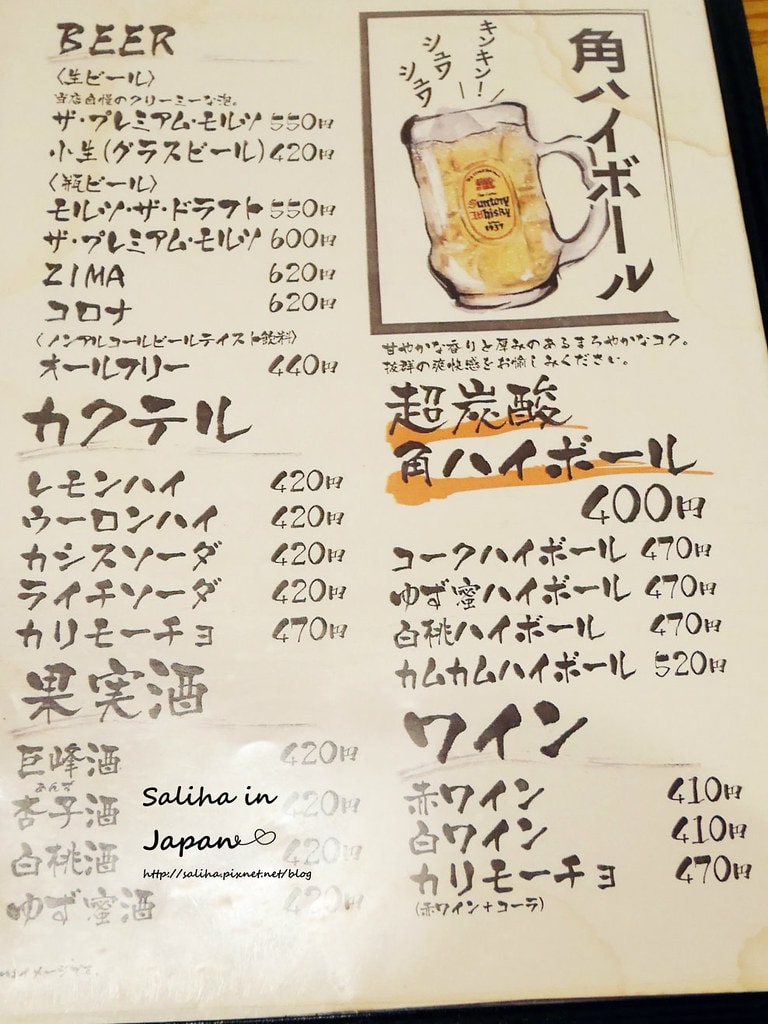 BEER
〈生ビール〉
当店自慢のクリーミーな泡。
ザ・プレミアム・モルツ 550円
小生(グラスビール) 420円
〈瓶ビール〉
モルツ・ザ・ドラフト 550円
ザ・プレミアム・モルツ 600円
ZIMA 620円
コロナ 620円
〈ノンアルコールビールテイスト飲料〉
オールフリー 440円
カクテル
レモンハイ 420円
ウーロンハイ 420円
カシスソーダ 420円
ライチソーダ 420円
カリモーチョ 470円
果実酒
巨峰酒 420円
あんず
杏子酒 420円
白桃酒 420円
ゆず蜜酒 420円
キンキン!
シュワ
シュワ
角ハイボール
Suntory
Whisky
1937
甘やかな香りと厚みのあるまろやかなコク。
抜群の爽快感をお愉しみください。
超炭酸
角ハイボール
400円
コークハイボール 470円
ゆず蜜ハイボール 470円
白桃ハイボール 470円
カムカムハイボール 520円
ワイン
赤ワイン 410円
白ワイン 410円
カリモーチョ 470円
(赤ワイン+コーラ)
Saliha in
Japan
http://saliha.pixnet.net/blog